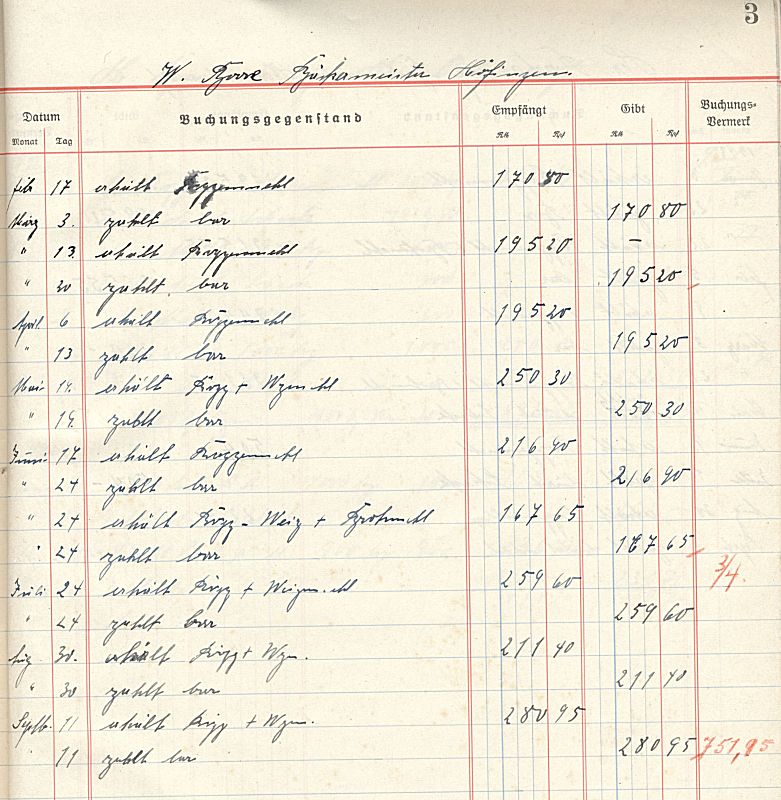 3
W. Bäckermeister Höfingen.
Datum Buchungsgegenstand Empfängt Gibt Buchungs-Vermerk
Monat Tag RM Rpf RM Rpf
Feb 17 erhält Roggenmehl 170 80
März 3. zahlt bar 170 80
" 13. erhält Roggenmehl 195 20 –
" 20 zahlt bar 195 20
April 6 erhält Roggenmehl 195 20
" 13 zahlt bar 195 20
Mai 14. erhält Rogg + Wzmehl 250 30
" 19. zahlt bar 250 30
Juni 17 erhält Roggenmehl 216 90
" 24 zahlt bar 216 90
" 24 erhält Rogg - Weiz + Brotmehl 167 65
" 24 zahlt bar 167 65
3/4.
Juli 24 erhält Rogg + Weizmehl 259 60
" 24 zahlt bar 259 60
Aug 30. erhält Rogg + Wzm. 211 40
" 30 zahlt bar 211 40
Septb. 11 erhält Rogg + Wzm. 280 95
" 11 zahlt bar 280 95 751,95